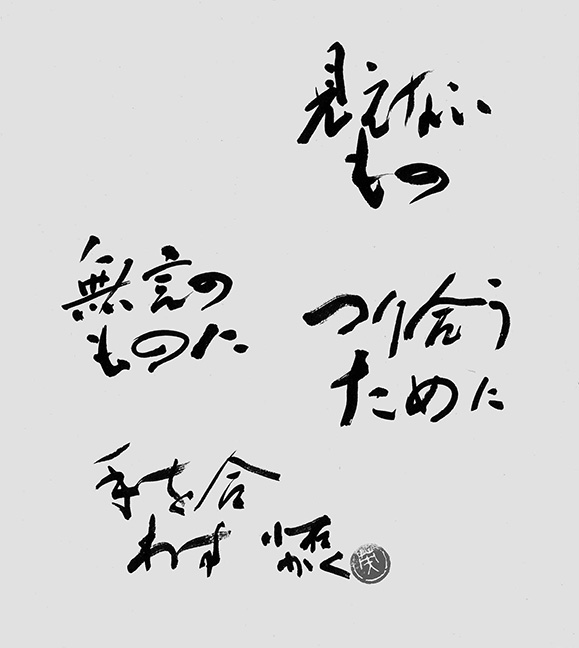 見えない
もの
つり合う
ために
無言の
ものに
手を合
わす